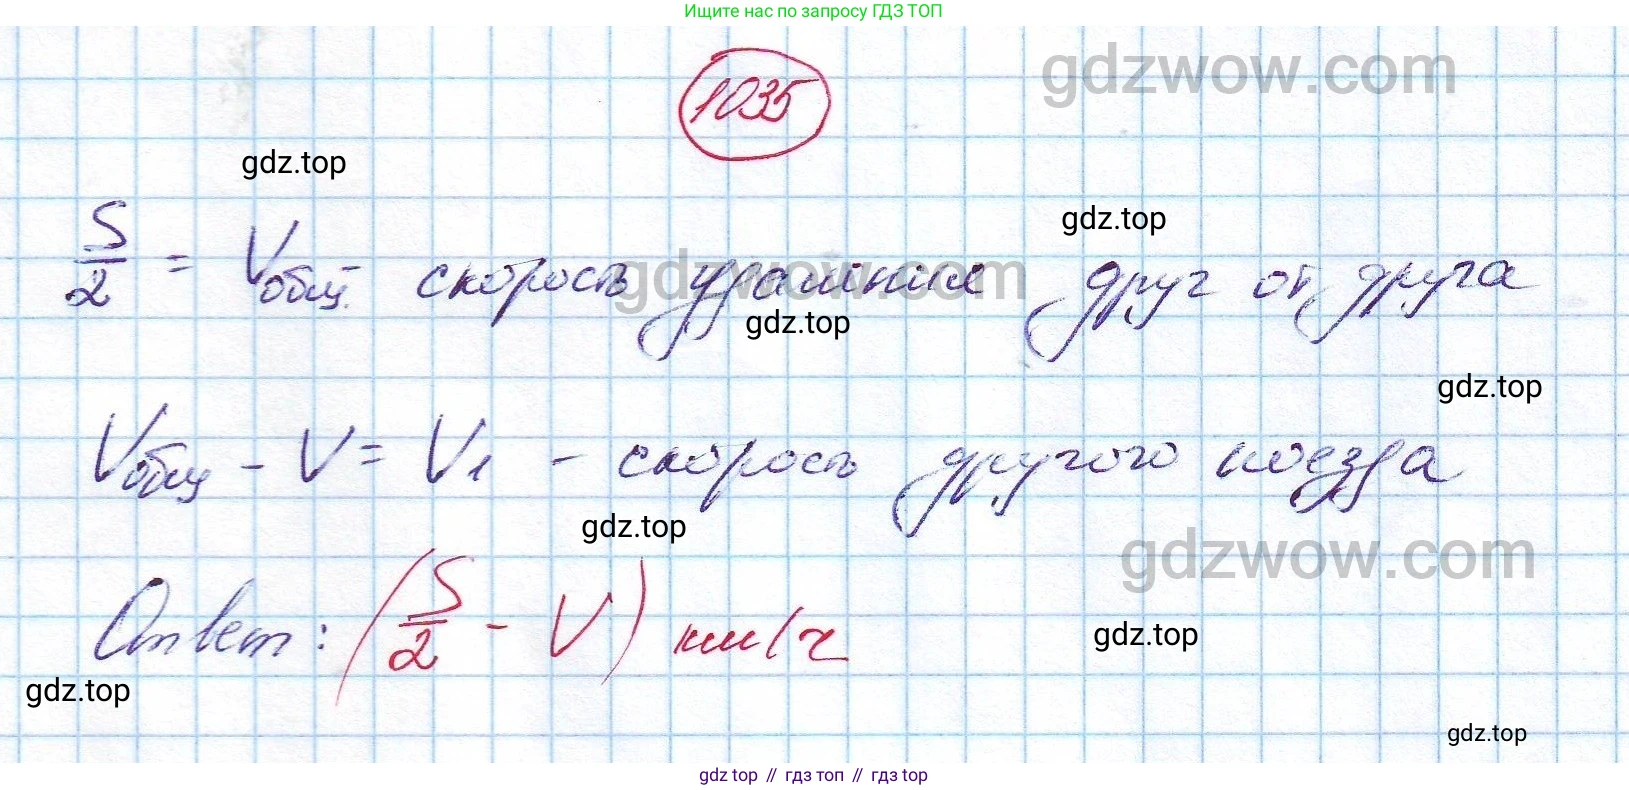 Ищите нас по запросу ГДЗ ТОП
gdzwow.com
1035
gdz.top
gdz.top
S/2 = Vобщ. скорость удаления друг от друга
gdzwow.com
gdz.top
gdz.top
Vобщ - V = V1 - скорость другого поезда
gdz.top
gdzwow.com
Ответ: (S/2 - V) км/ч
gdz.top
gdz.top
gdz.top
gdz top // гдз топ // гдз top